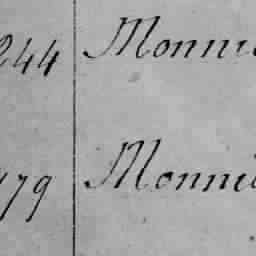 244 Monni
179 Monni